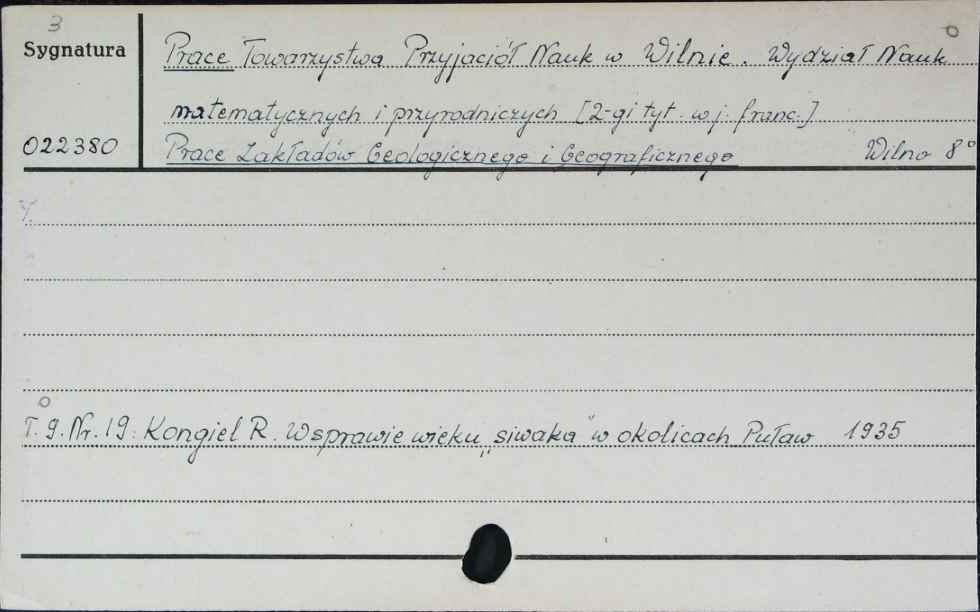 3
Sygnatura
Prace Towarzystwa Przyjaciół Nauk w Wilnie. Wydział Nauk
matematycznych i przyrodniczych [2-gi tyt. w j. franc.]
022380
Prace Zakładów Geologicznego i Geograficznego Wilno 8°
T. 9. Nr. 19: Kongiel R. W sprawie wieku „siwaka” w okolicach Puław 1935